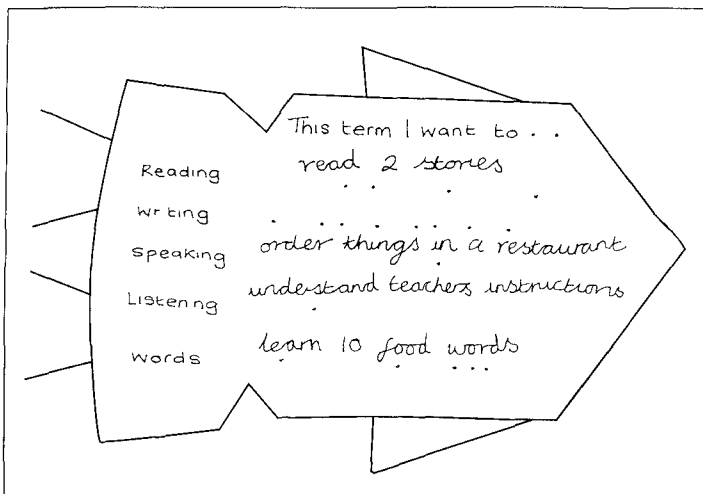 This term I want to . .
Reading read 2 stories
Writing
Speaking order things in a restaurant
Listening understand teachers instructions
Words learn 10 food words